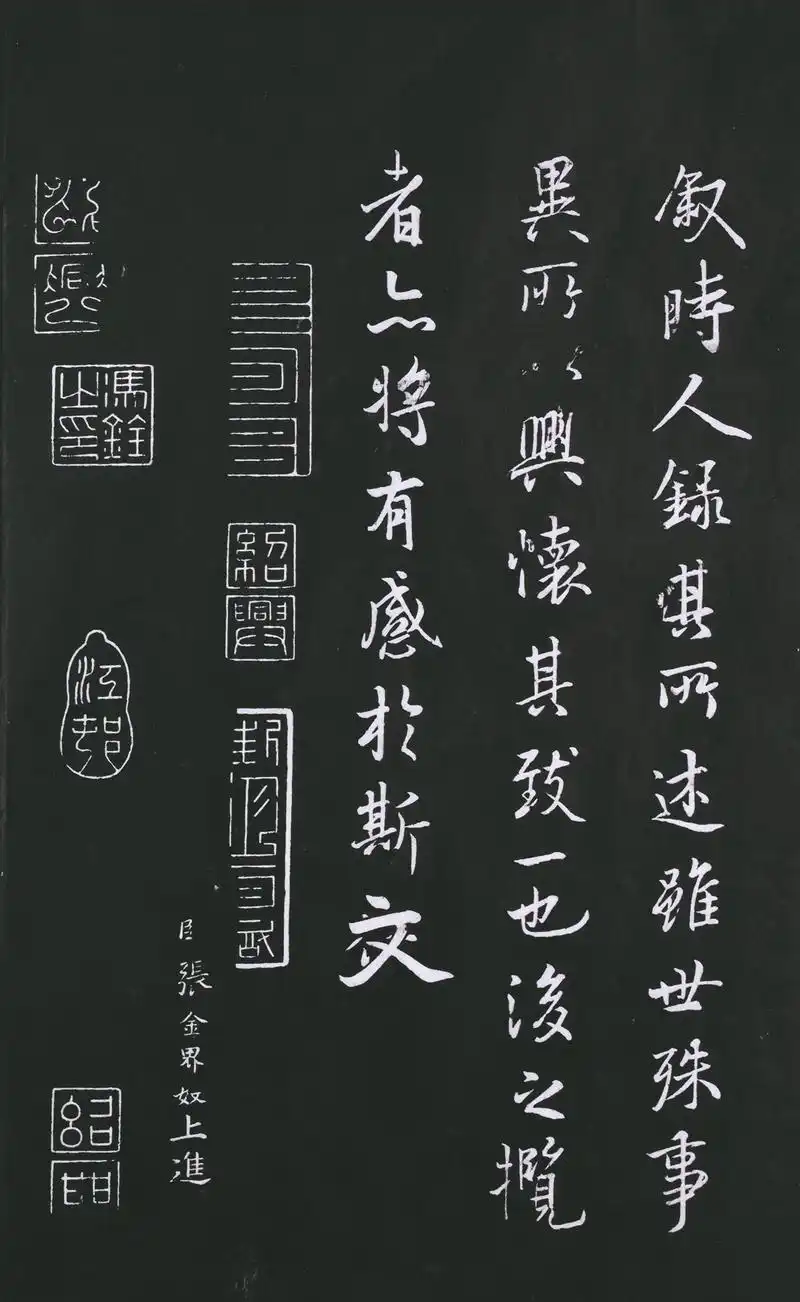 敘時人録其所述雖世殊事
異所以興懷其致一也後之攬
者亦將有感於斯文
紹興
臣張金界奴上進
馮銓之印
江邨